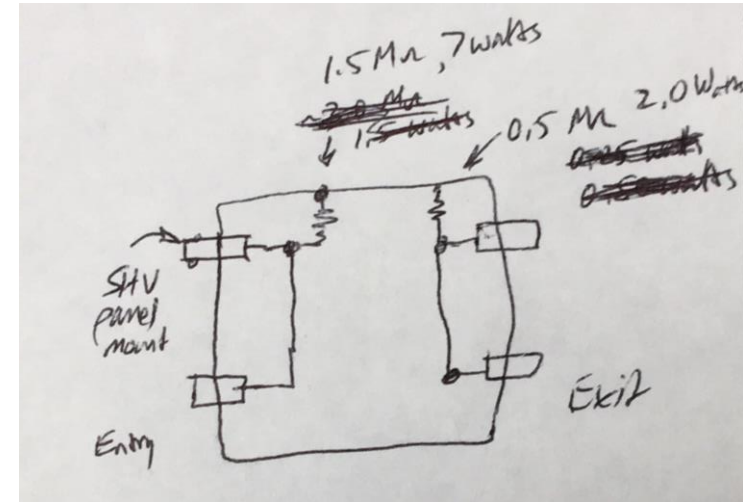 1.5 MΩ, 7 watts
~2.0 MΩ
1.5 watts
0.5 MΩ 2.0 Watts
0.25 watt
0.50 watts
SHV
panel
mount
Entry
Exit